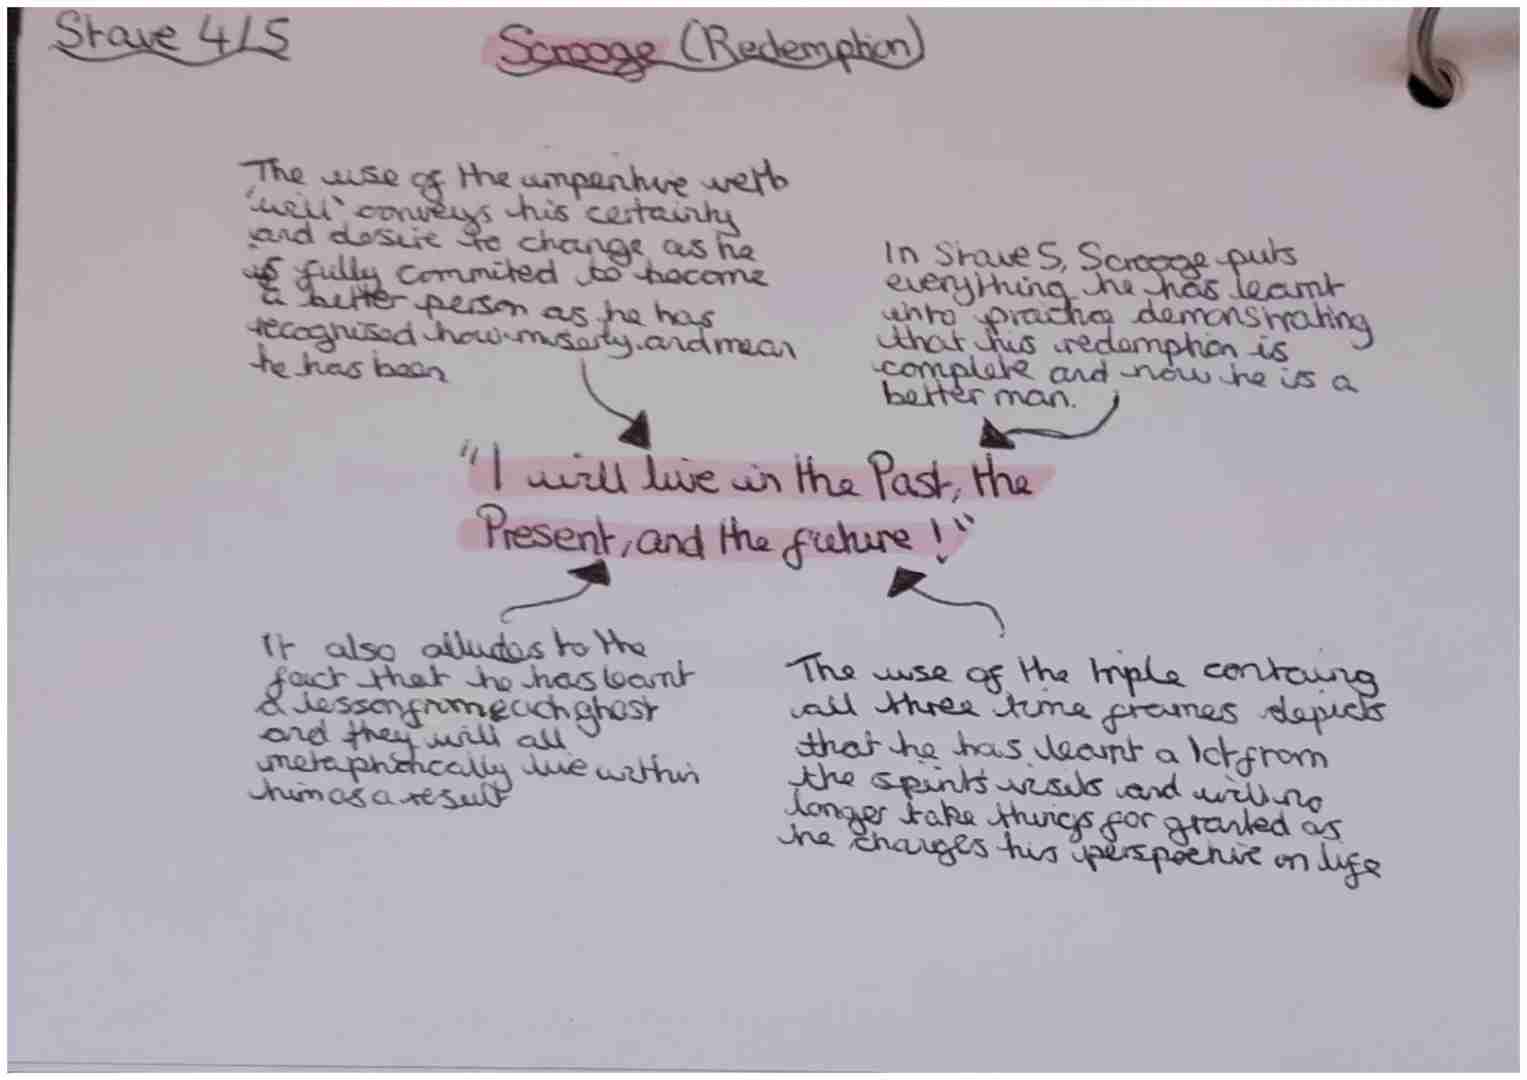 Stave 4/5
Scrooge (Redemption)
The use of the imperitive verb
'will' conveys his certainty
and desire to change as he
is fully commited to become
a better person as he has
recognised how miserly and mean
he has been
In Stave 5, Scrooge puts
everything he has learnt
into practice demonstrating
that his redemption is
complete and now he is a
better man.
"I will live in the Past, the
Present, and the future!"
It also alludes to the
fact that he has learnt
a lesson from each ghost
and they will all
metaphorically live within
him as a result
The use of the triple containg
all three time frames depicts
that he has learnt a lot from
the spirits' visits and will no
longer take things for granted as
he changes his perspective on life